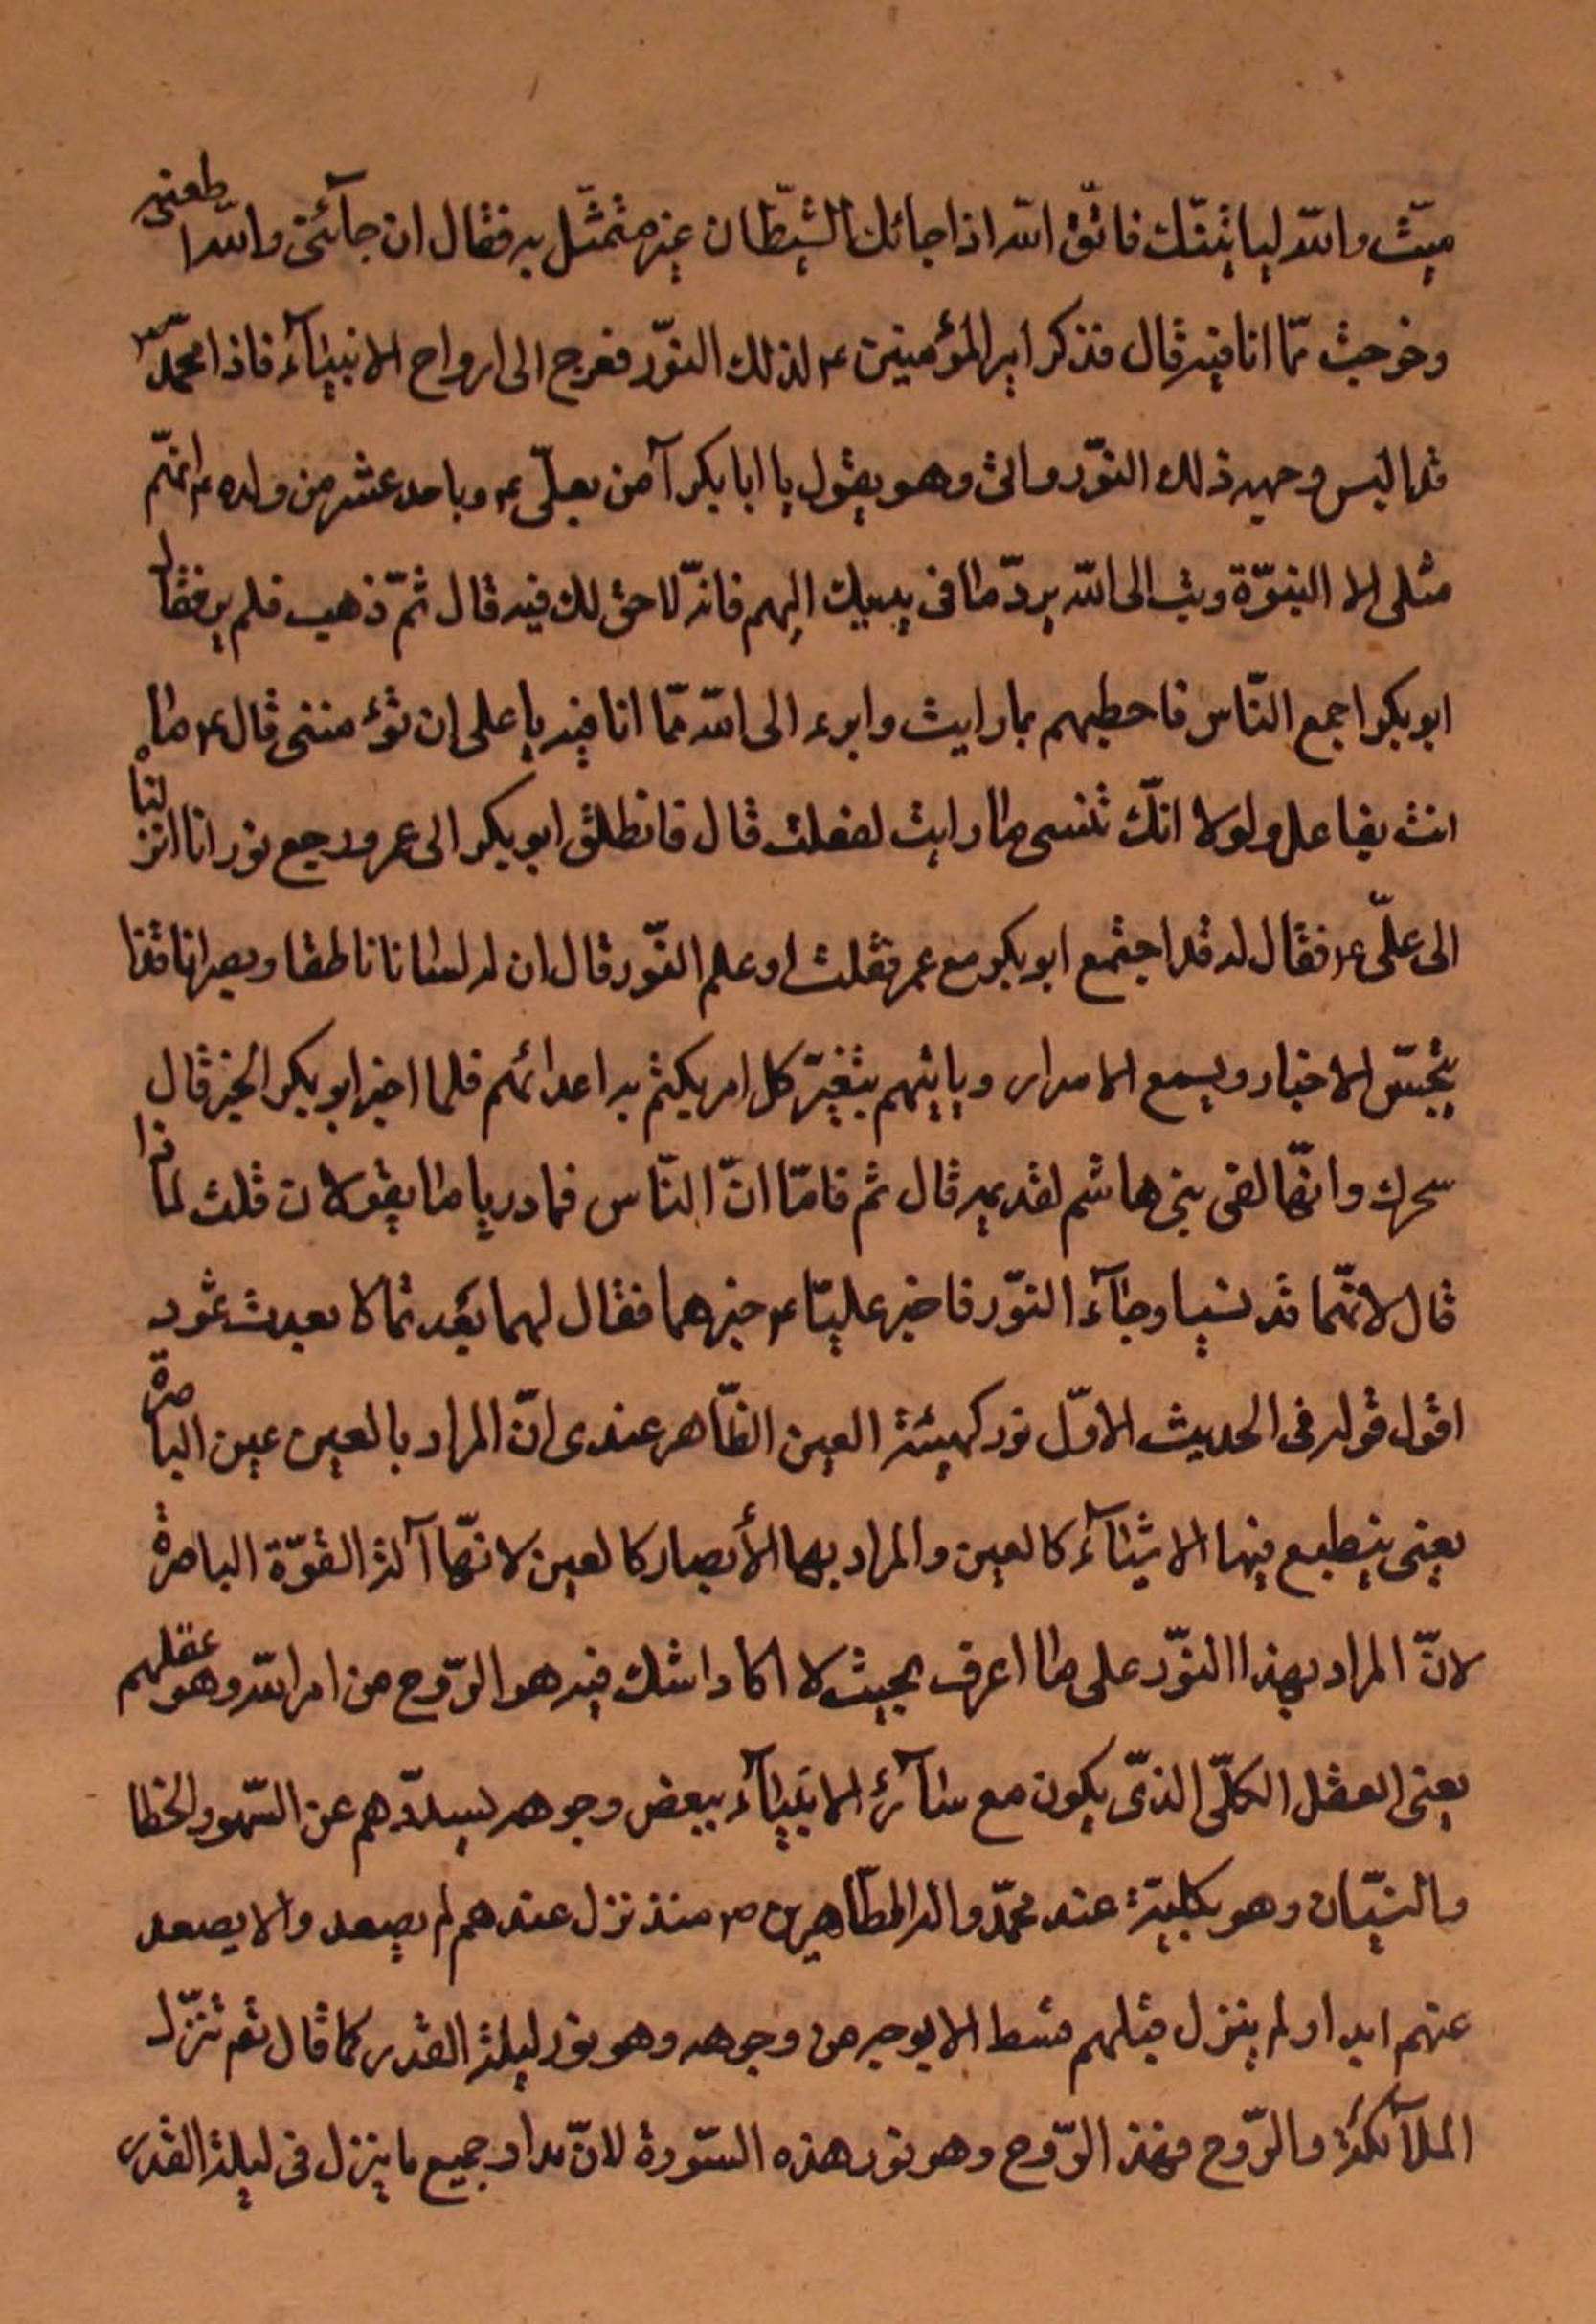 ميّت والله لياتينّك فاتّق الله اذا جائك الشيّطان غير متمثّل به فقال ان جآئني والله اطعته
وخرجت ممّا انا فيه قال فذكر امير المؤمنين ع لذلك النوّر فعرج الى ارواح الانبيآء فاذا محمّد ص
قد البس وجهه ذلك النوّر واتى وهو يقول يا ابا بكر آمن بعلّى ع وباحد عشر من ولده ع انهّم
مثلى الا النبوّة وتب الى الله بردّ ما فى يديك اليهم فانّه لا حق لك فيه قال ثمّ ذهب فلم ير فقال
ابو بكر اجمع النّاس فاخطبهم بما رايت وابرء الى الله ممّا انا فيه يا على ان تؤمننى قال ع ما
انت بفاعل ولولا انّك تنسى ما رايت لفعلت قال فانطلق ابو بكر الى عمر ورجع نور انا انزلنا
الى علّى ع فقال له قد اجتمع ابو بكر مع عمر فقلت او علم النوّر قال ان له لسانا ناطقا وبصرا نافذا
يتجسّس الاخبار ويسمع الاسرار وياتيهم بتفسير كل امر يكتم به اعدائهم فلما اخبر ابو بكر الخبر قال
سحرك وانهّا لفى بنى هاشم لقديمه قال ثم قاما انّ النّاس فما دريا ما يقولان قلت لماذا
قال لانهّما قد نسيا وجآء النوّر فاخبر عليّا ع خبرهما فقال لهما بعدتما كا بعدت ثمود
اقول قوله فى الحديث الاوّل نور كهيئة العين الظّاهر عندى انّ المراد بالعين عين الباصرة
يعنى ينطبع فيها الاشيآء كالعين والمراد بها الأبصار كالعين لانهّا آلة القوّة الباصرة
لانّ المراد بهذا النوّر على ما اعرف بحيث لا اكاد اشك فيه هو الرّوح من امر الله وهو عقلهم
يعنى العقل الكلّى الذّى يكون مع سآئر الانبيآء ببعض وجوهه يسدّدهم عن السّهو والخطا
والنسيّان وهو بكليّة عند محمّد واله الطّاهرين ص منذ نزل عندهم لم يصعد والا يصعد
عنهم ابدا ولم ينزل قبلهم قط الا بوجه من وجوهه وهو نور ليلة القدر كما قال تعم تنزّل
الملآئكة والرّوح فهذ الرّوح وهو نور هذه السّورة لانّ مدار جميع ما ينزل فى ليلة القدر